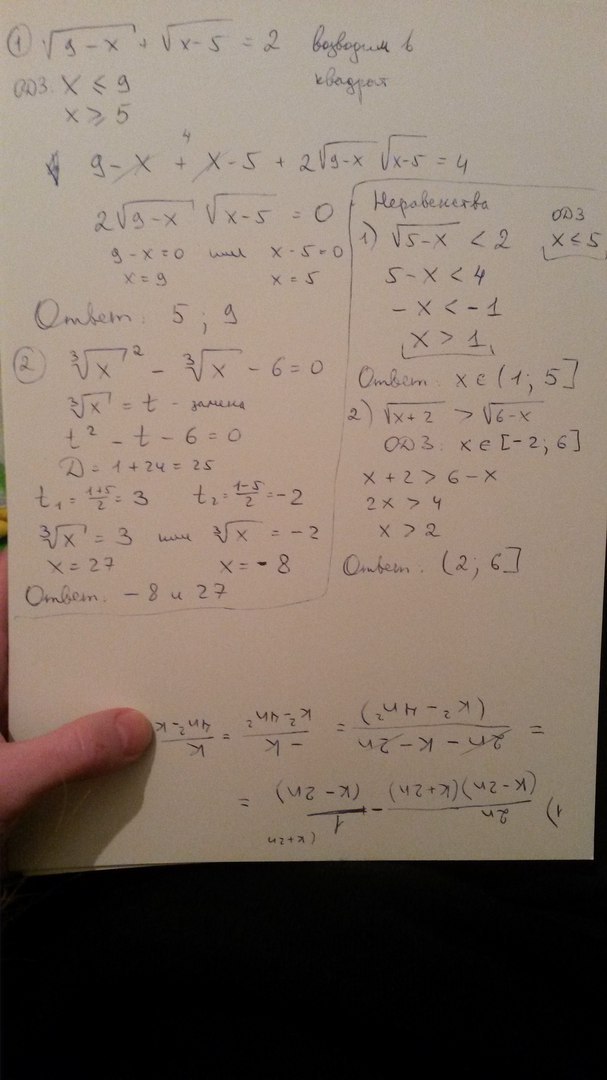 ① √9-x + √x-5 = 2 возводим в
квадрат
ОДЗ: x ≤ 9
x ≥ 5
4
9-x + x-5 + 2√9-x √x-5 = 4
2√9-x √x-5 = 0
9-x=0 или x-5=0
x=9 x=5
Ответ: 5; 9
② ∛x² - ∛x - 6 = 0
∛x = t - замена
t² - t - 6 = 0
D = 1+24 = 25
t₁ = (1+5)/2 = 3 t₂ = (1-5)/2 = -2
∛x = 3 или ∛x = -2
x = 27 x = -8
Ответ: -8 и 27
Неравенства
1) √5-x < 2 ОДЗ x ≤ 5
5-x < 4
-x < -1
x > 1
Ответ: x ∈ (1; 5]
2) √x+2 > √6-x
ОДЗ: x ∈ [-2; 6]
x+2 > 6-x
2x > 4
x > 2
Ответ: (2; 6]
(k+2n
1) 2n/((k-2n)(k+2n)) - 1/(k-2n) =
= (2n-k-2n)/(k²-4n²) = -k/(k²-4n²) = k/(4n²-k